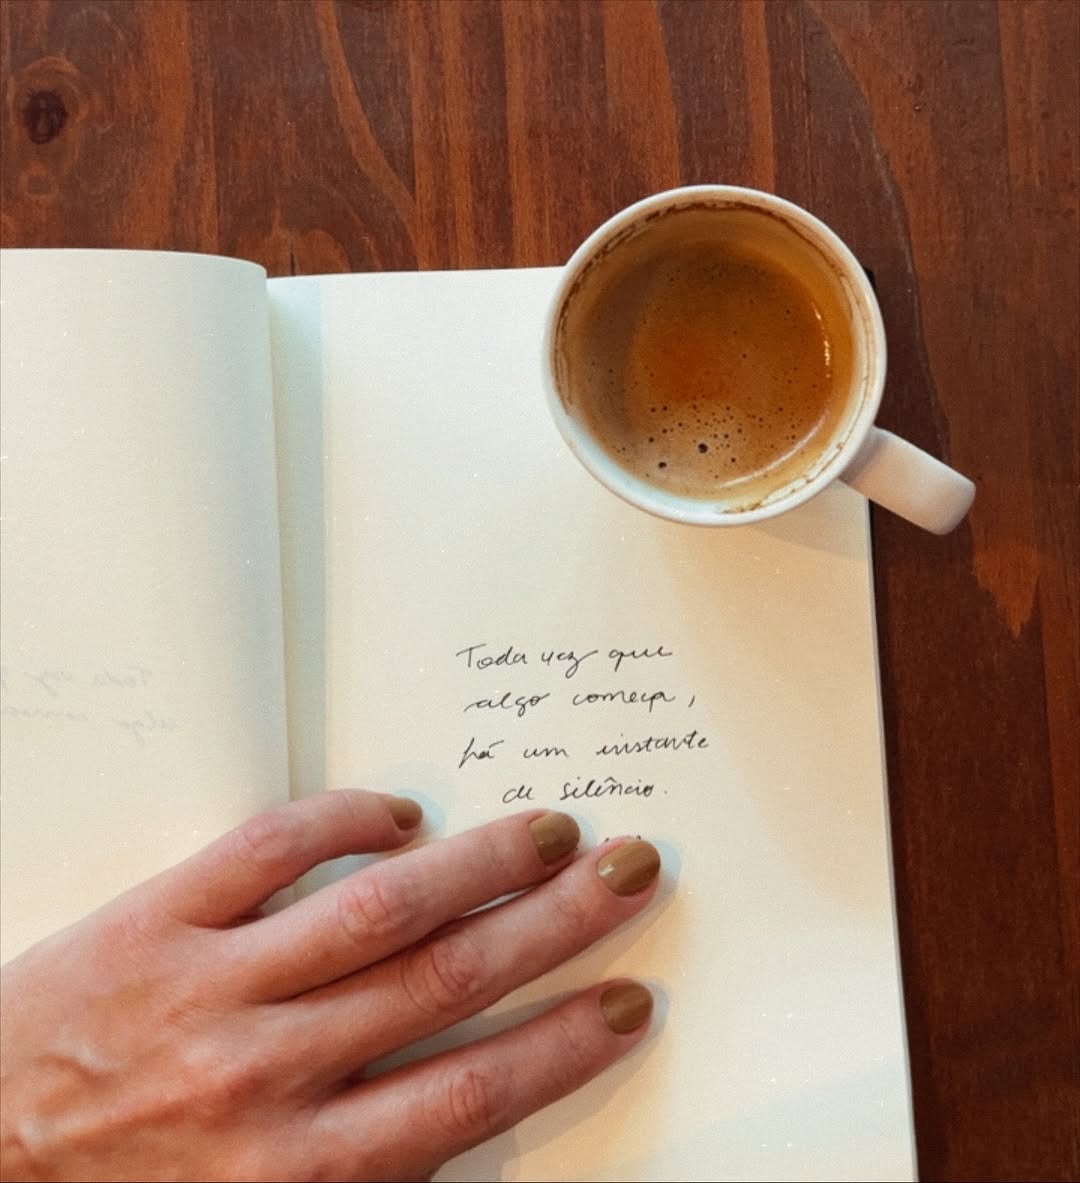 Toda vez que
algo começa,
há um instante
de silêncio.